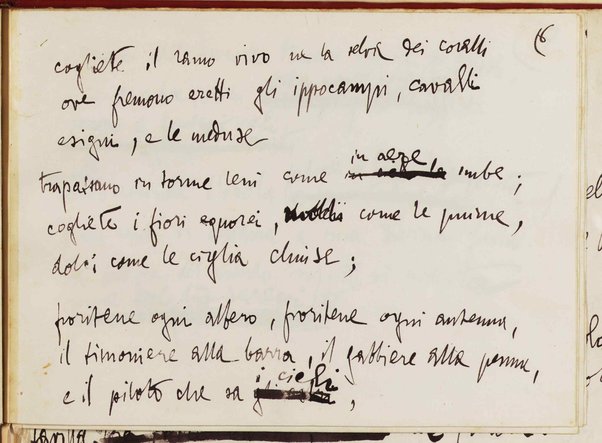 6
cogliete il ramo vivo ne la selva dei coralli
ove fremono eretti gli ippocampi, cavalli
esigui, e le meduse
trapassano in torme leni come in aere nube;
cogliete i fiori equorei, come le piume,
dolci come le ciglia chiuse;
fioritene ogni albero, fioritene ogni antenna,
il timoniere alla barra, il gabbiere alla penna,
e il piloto che sa i cieli,